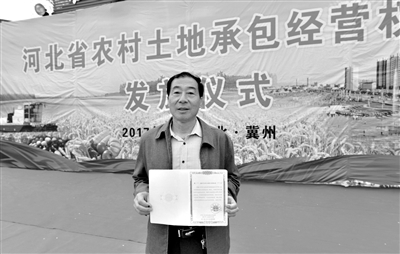 河北省农村土地承包经营权
发放仪式
2017
北·冀州